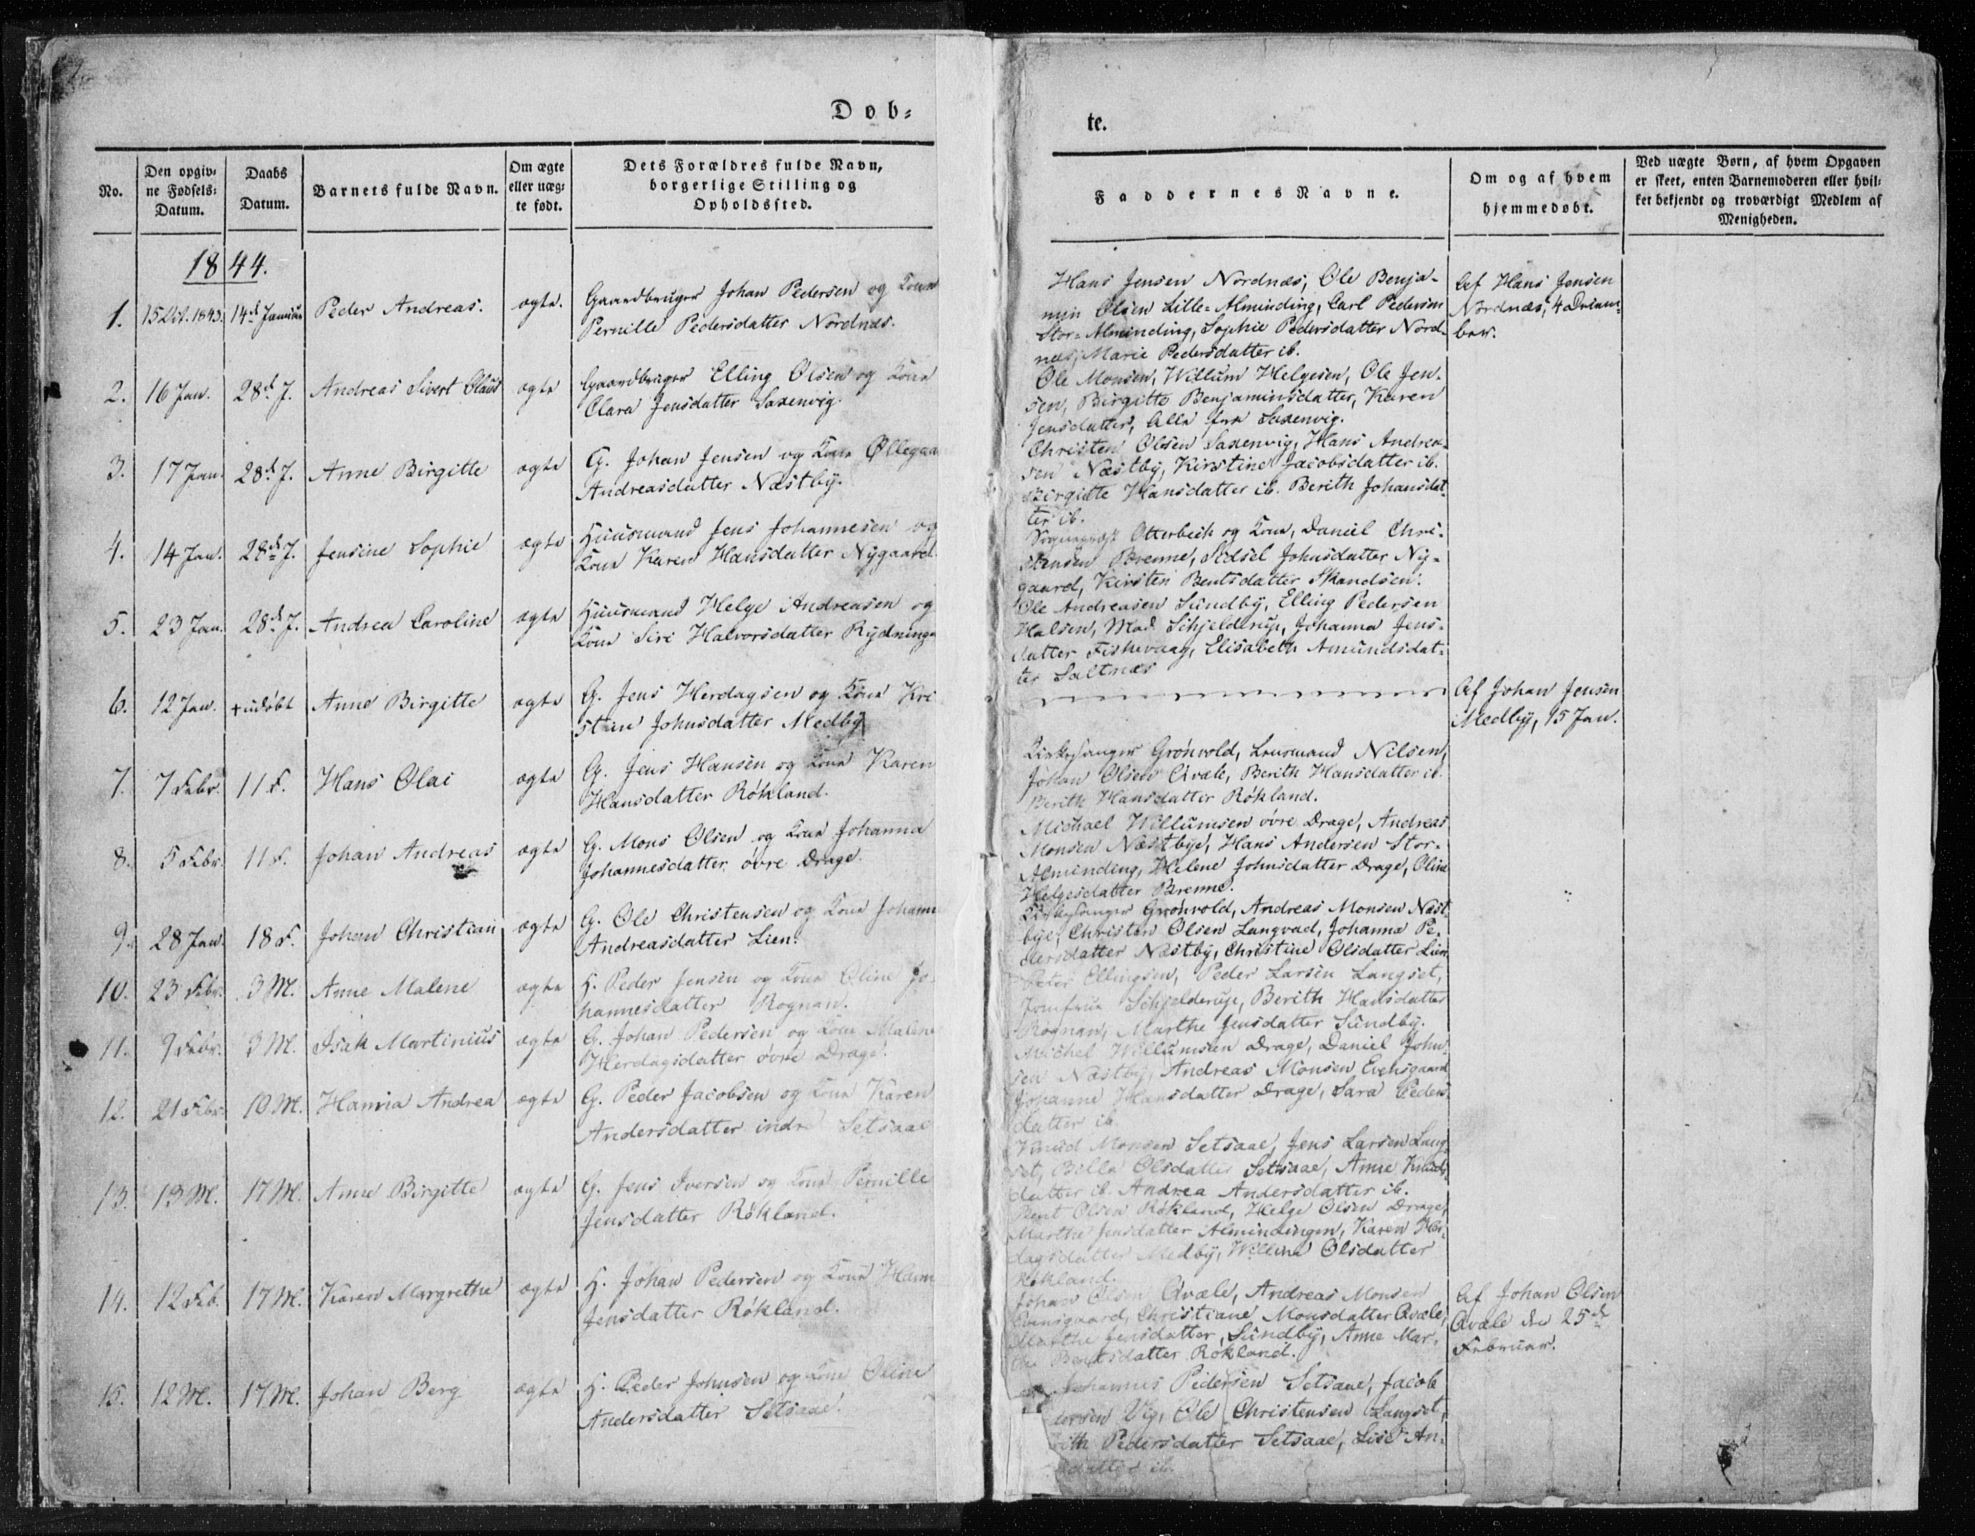 Døb-
te.
No.
Den opgiv-
ne Fødsels-
Datum.
Daabs
Datum.
Barnets fulde Navn.
Om ægte
eller uæg-
te født.
Dets Forældres fulde Navn,
borgerlige Stilling og
Opholdssted.
Faddernes Navne.
Om og af hvem
hjemmedøbt.
Ved uægte Børn, af hvem Opgaven
er skeet, enten Barnemoderen eller hvil-
ket bekjendt og troværdigt Medlem af
Menigheden.
1844.
1. 15 Oct. 1843. 14de Januar Peder Andreas. ægte. Gaardbruger Johan Pedersen og Kone
Pernille Pedersdatter Nordnæs.
Hans Jensen Nordnæs, Ole Benja-
min Olsen Lille-Alminding, Carl Pedersen
Stor-Alminding, Sophie Pedersdatter Nord-
næs, Marie Pedersdatter ib.
Af Hans Jensen
Nordnæs, 4 Decem-
ber.
2. 16 Jan. 28de J. Andreas Sivert Olaus ægte Gaardbruger Elling Olsen og Kone
Clara Jensdatter Saxenvig.
Ole Monsen, Willum Helgesen, Ole Jen-
sen, Birgitte Benjaminsdatter, Karen
Jensdatter, Alle fra Saxenvig.
3. 17 Jan. 28de J. Anne Birgitte ægte G. Johan Jensen og Kone Øllegaa
Andreasdatter Næstby.
Christen Olsen Saxenvig, Hans Andrea-
sen Næstby, Kirstine Jacobsdatter ib.
Birgitte Hansdatter ib. Berith Johansdat-
ter ib.
4. 14 Jan. 28de J. Jensine Sophie ægte Huusmand Jens Johannesen og
Kone Karen Hansdatter Nygaard.
Sognepræst Otterbech og Kone, Daniel Chri-
stensen Brenne, Sidsel Johnsdatter Ny-
gaard, Kirsten Bentsdatter Skandsen.
5. 23 Jan. 28de J. Andrea Caroline ægte Huusmand Helge Andreasen og
Kone Siri Halvorsdatter Rydninge
Ole Andreasen Sundby, Elling Pedersen
Halsen, Mad. Schjelderup, Johanna Jens-
datter Fiskevaag, Elisabeth Amundsdat-
ter Saltnæs
6. 12 Jan. + udøbt Anne Birgitte ægte G. Jens Herdagsen og Kone Kri
stine Johnsdatter Medby
Af Johan Jensen
Medby, 15 Jan.
7. 7 Febr. 11 F. Hans Olai ægte G. Jens Hansen og Kone Karen
Hansdatter Røkland.
Kirkesanger Grønvold, Lensmand Nilsen,
Johan Olsen Qvæle, Berith Hansdatter ib.
Berith Hansdatter Røkland.
8. 5 Febr. 11 F. Johan Andreas ægte G. Mons Olsen og Kone Johanna
Johannesdatter øvre Drage.
Michael Willumsen øvre Drage, Andreas
Monsen Næstbye, Hans Andersen Stor-
Alminding, Helene Johnsdatter Drage, Oline
Helgesdatter Brenne.
9. 28 Jan. 18 F. Johan Christian ægte G. Ole Christensen og Kone Johanne
Andreasdatter Lien.
Kirkesanger Grønvold, Andreas Monsen Næst-
bye, Christen Olsen Langvad, Johanna Pe-
dersdatter Næstby, Christine Olsdatter Lien
10. 23 Febr. 3 M. Anne Malene ægte H. Peder Jensen og Kone Oline Jo-
hannesdatter Rognan.
Peter Ellingsen, Peder Larsen Langset,
Jomfrue Schjelderup, Berith Hansdatter
Rognan, Marthe Jensdatter Sundby.
11. 9 Febr. 3 M. Isak Martinius ægte G. Johan Pedersen og Kone Malene
Herdagsdatter øvre Drage.
Michel Willumsen Drage, Daniel John-
sen Næstby, Andreas Monsen Evensgaard
Johanne Hansdatter Drage, Sara Peders
datter ib.
12. 21 Febr. 10 M. Hanna Andrea ægte G. Peder Jacobsen og Kone Karen
Andersdatter indre Setsaae
Knud Monsen Setsaae, Jens Larsen Lang-
set, Bille Olsdatter Setsaae, Anne Knuds
datter ib. Andrea Andersdatter ib.
13. 13 M. 17 M. Anne Birgitte ægte G. Jens Iversen og Kone Pernille
Jensdatter Røkland.
Bent Olsen Røkland, Helge Olsen Drage,
Marthe Jensdatter Almindingen, Karen Her-
dagsdatter Medby, Willine Olsdatter
Røkland.
14. 12 Feb. 17 M. Karen Margrethe ægte H. Johan Pedersen og Kone Hann
Jensdatter Røkland.
Johan Olsen Qvæle, Andreas Monsen
Evensgaard, Christiane Monsdatter Qvæle,
Marthe Jensdatter Sundby, Anne Mar-
the Bentsdatter Røkland.
Af Johan Olsen
Qvæle den 25de
Februar.
15. 12 M. 17 M. Johan Berg ægte H. Peder Johnsen og Kone Oline
Andersdatter Setsaae.
Johannes Pedersen Setsaae, Jacob
dersen Vig, Ole Christensen Langset,
rith Pedersdatter Setsaae, Lise An-
datter ib.